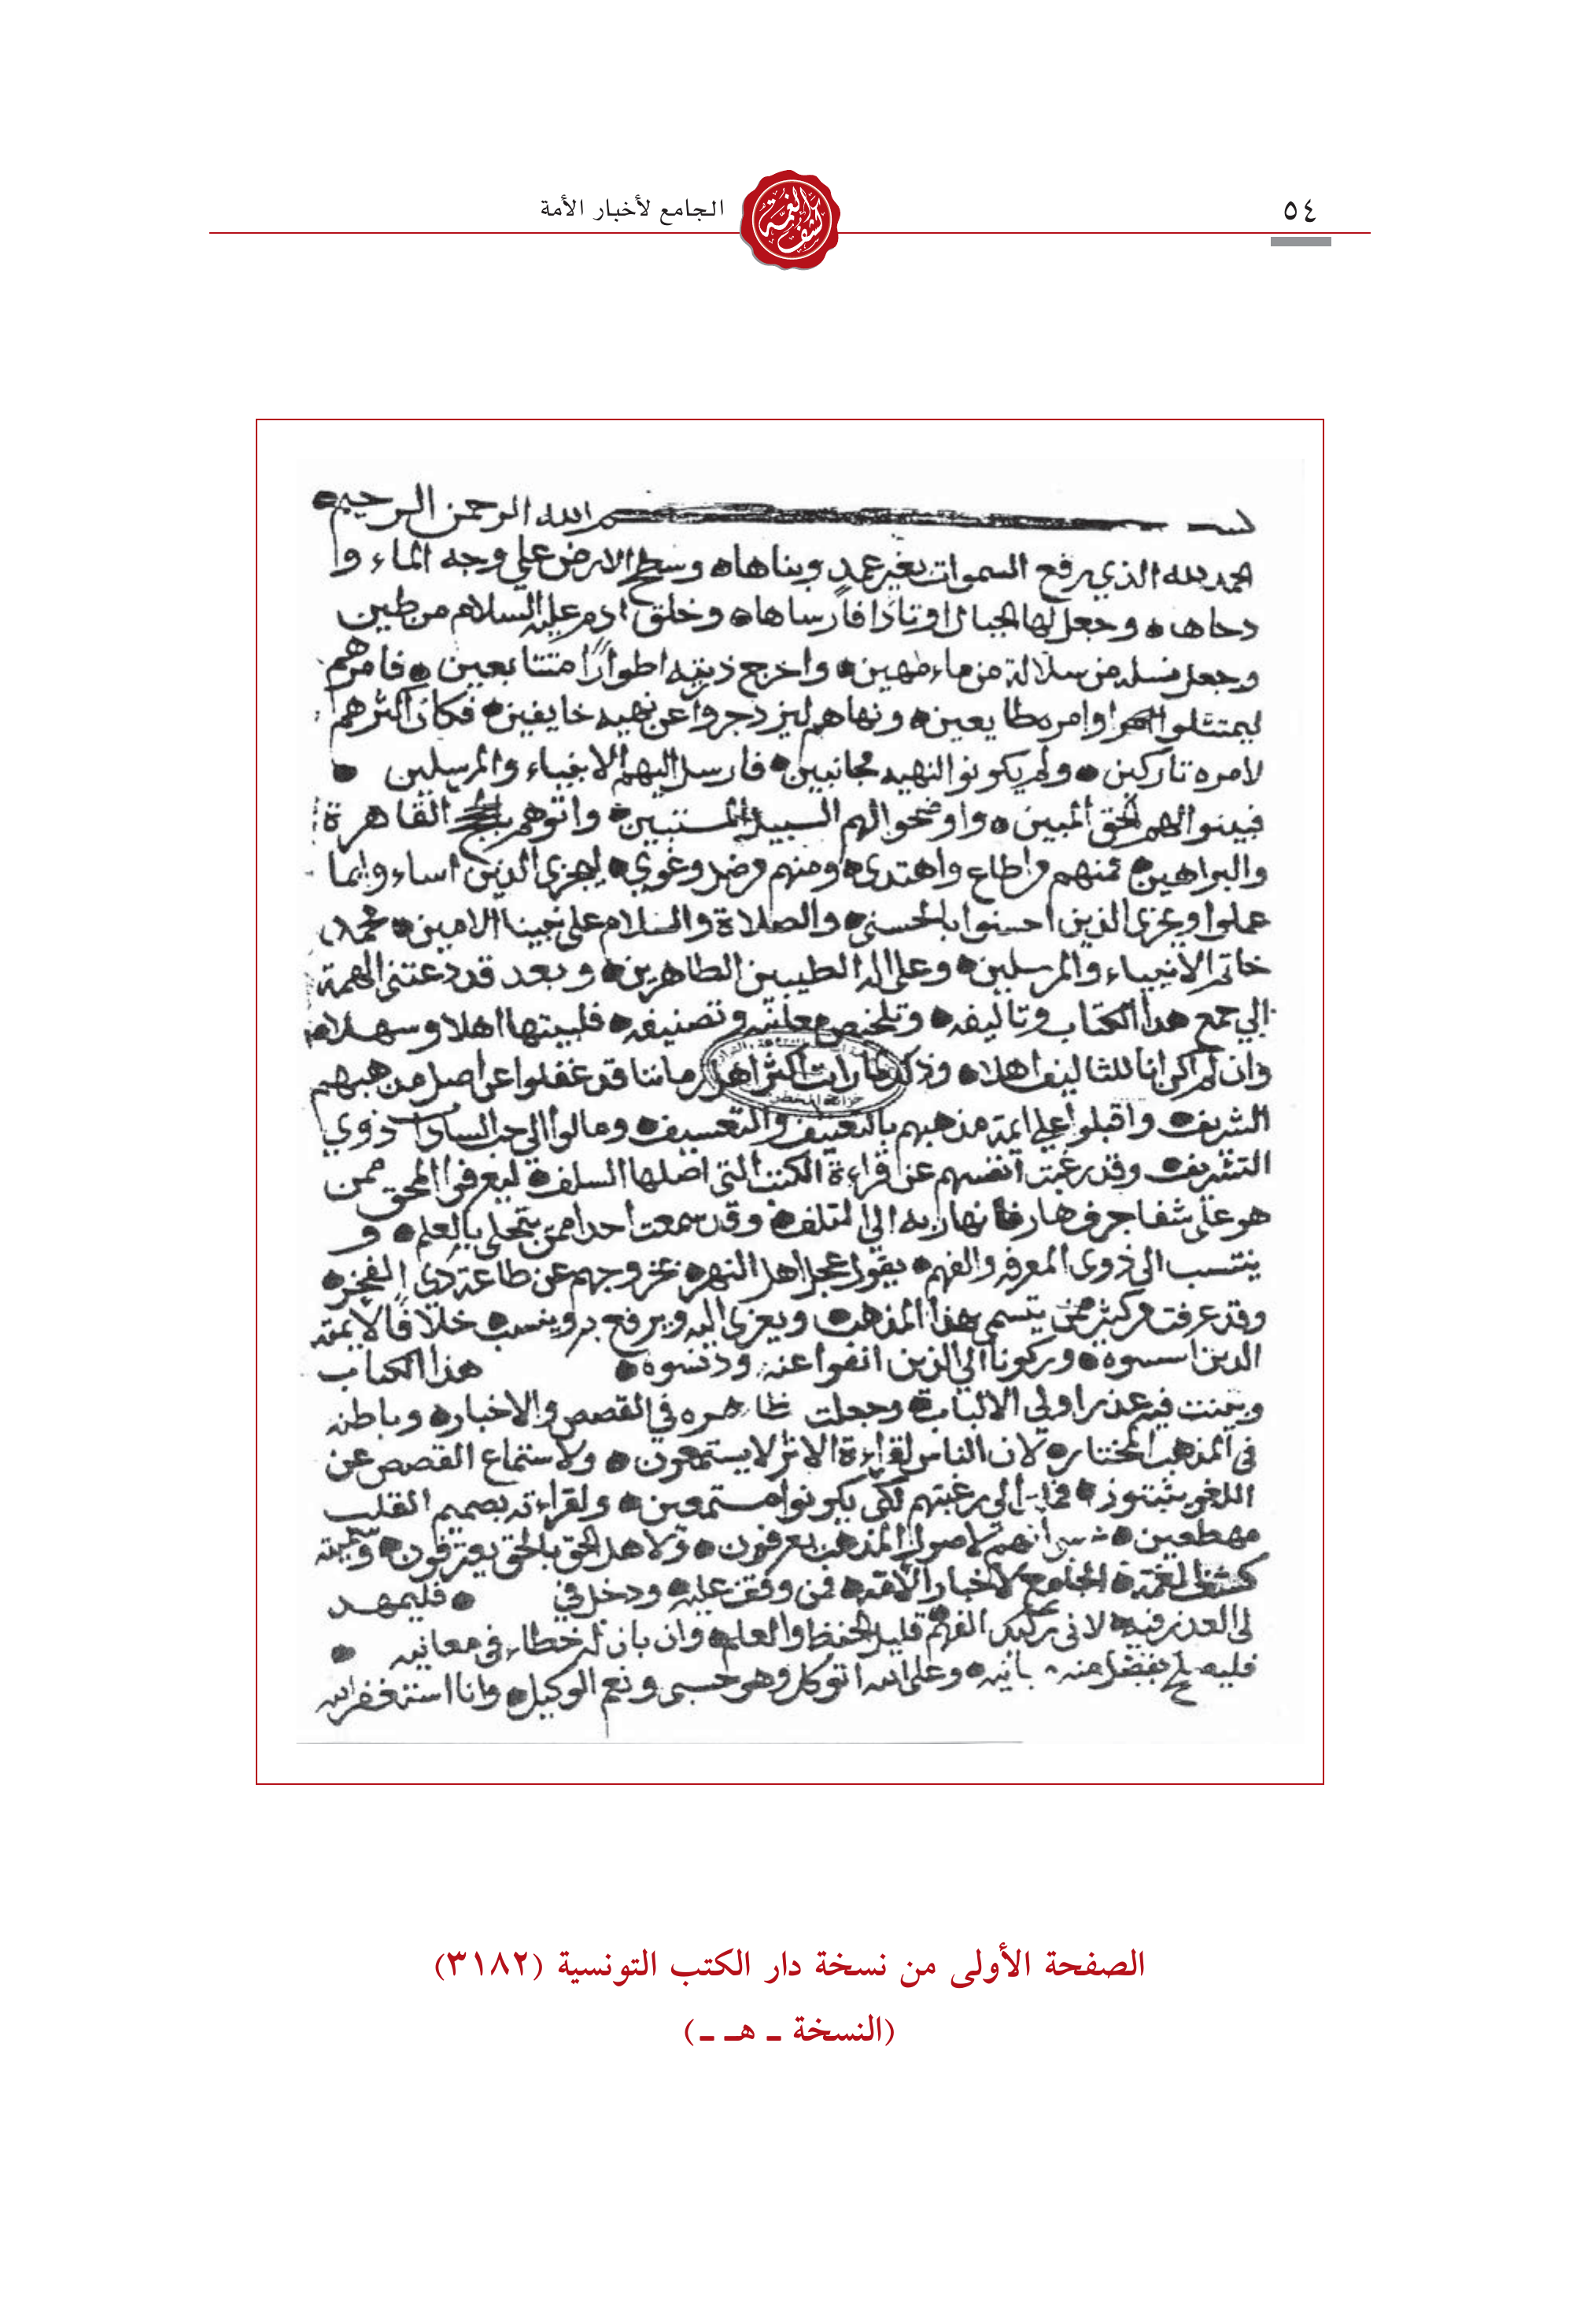 ٥٤
كشف الغمة
الجامع لأخبار الأمة
بسم الله الرحمن الرحيم
الحمد لله الذي رفع السموات بغير عمد وبناها وسطح الارض علي وجه الماء و
دحاها وجعل لها الجبال اوتادا فارساها وخلق ادم عليه السلام من طين
وجعل نسله من سلالة من ماء مهين واخرج ذريته اطوارًا متتابعين فامرهم
ليمتثلوا اوامره طايعين ونهاهم ليزدجروا عن نهيه خايفين فكان اكثرهم
لامره تاركين ولم يكونوا لنهيه مجانبين فارسل اليهم الانبياء والمرسلين
فبينوا لهم الحق المبين واوضحوا لهم السبيل المستبين واتوهم القاهرة
والبراهين فمنهم من اطاع واهتدى ومنهم من ضل وغوي ليجزي الذين اساءو بما
عملوا ويجزى الذين احسنوا بالحسنى والصلاة والسلام على نبينا الامين محمد
خاتم الانبياء والمرسلين وعلى اله الطيبين الطاهرين وبعد قد دعتني الهمة
الي جمع هذا الكتاب وتاليفه وتلخيص معانيه وتصنيفه فلبيتها اهلا وسهلا
وان لم اكن انا للتاليف اهلا وذلك لما رايت اكثر اهل زماننا قد غفلوا عن اصل مذهبهم
الشريف واقبلوا علي ايمة مذهبهم بالتعنيف والتعسيف ومالوا الي حب السادات ذوي
التشريف وقد رغبت انفسهم عن قراءة الكتب التي اصلها السلف ليعرفوا المحق ممن
هو على شفا جرف هار فانهار به الي التلف وقد سمعت احدا ممن يتحلى بالعلم و
ينتسب الى ذوى المعرفه والفهم يقول عجل اهل النهر بخروجهم عن طاعة ذي الفخر
وقد عرفت من كثير ممن يتسمى بهذا المذهب ويعزى اليه ويرفع به وينسب خلافًا لايمته
الذين اسسوه وركونا الي الذين انفوا عنه ودنسوه هذا الكتاب
وبينت فيه عذرا ولي الالباب وجعلت ظاهره في القصص والاخبار وباطنه
في المذهب المختار لان الناس لقراءة الاثر لا يستمعون ولاستماع القصص عن
اللغو الى رغبتهم لكي يكونوا مستمعين ولقراءته بصميم القلب
مهطعين انهم لاصول المذهب يعرفون ولاهل الحق بالحق يعترفون وسميته
كشف الغمة الجامع لاخبار الامة فمن وقف عليه ودخل في فليمهد
لي العذر فيه لاني ركيك الفهم قليل الحفظ والعلم وان بان له خطاء في معانيه
فليصلح بفضل منه وعلى الله اتوكل وهو حسبى ونعم الوكيل وانا استغفر الله
الصفحة الأولى من نسخة دار الكتب التونسية (٣١٨٢)
(النسخة ـ هـ ـ)